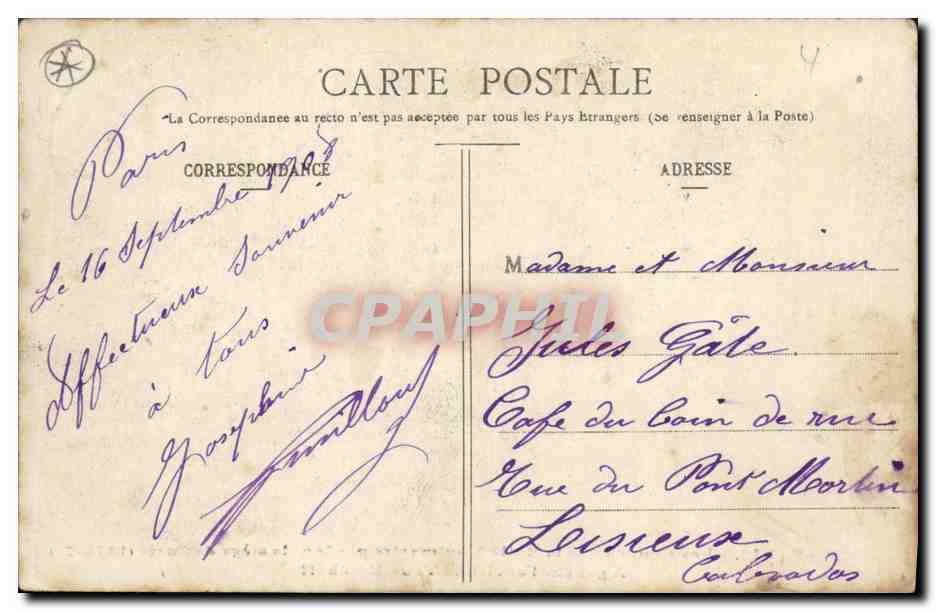 4
CARTE POSTALE
La Correspondance au recto n'est pas acceptée par tous les Pays Etrangers (Se renseigner à la Poste)
CORRESPONDANCE
Paris
Le 16 Septembre 1908
Affectueux Souvenir
à tous
Josephine
ADRESSE
Madame et Monsieur
Jules Gâte
Cafe du Coin de rue
Rue du Pont Mortin
Lisieux
Calvados
CPAPHIL